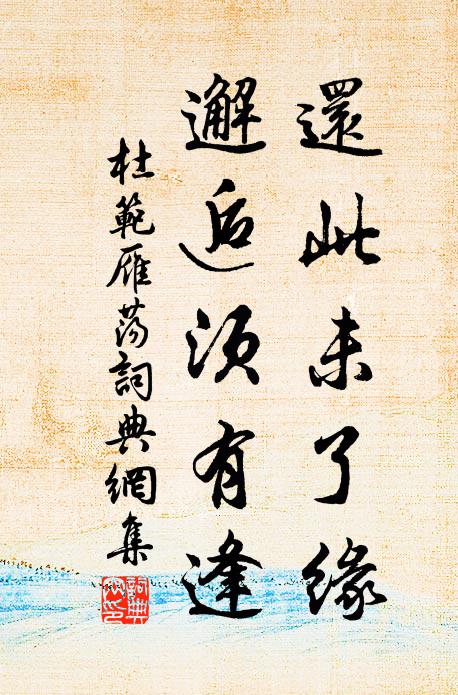 還此未了緣
邂逅須有逢
杜範雁蕩詞典網集